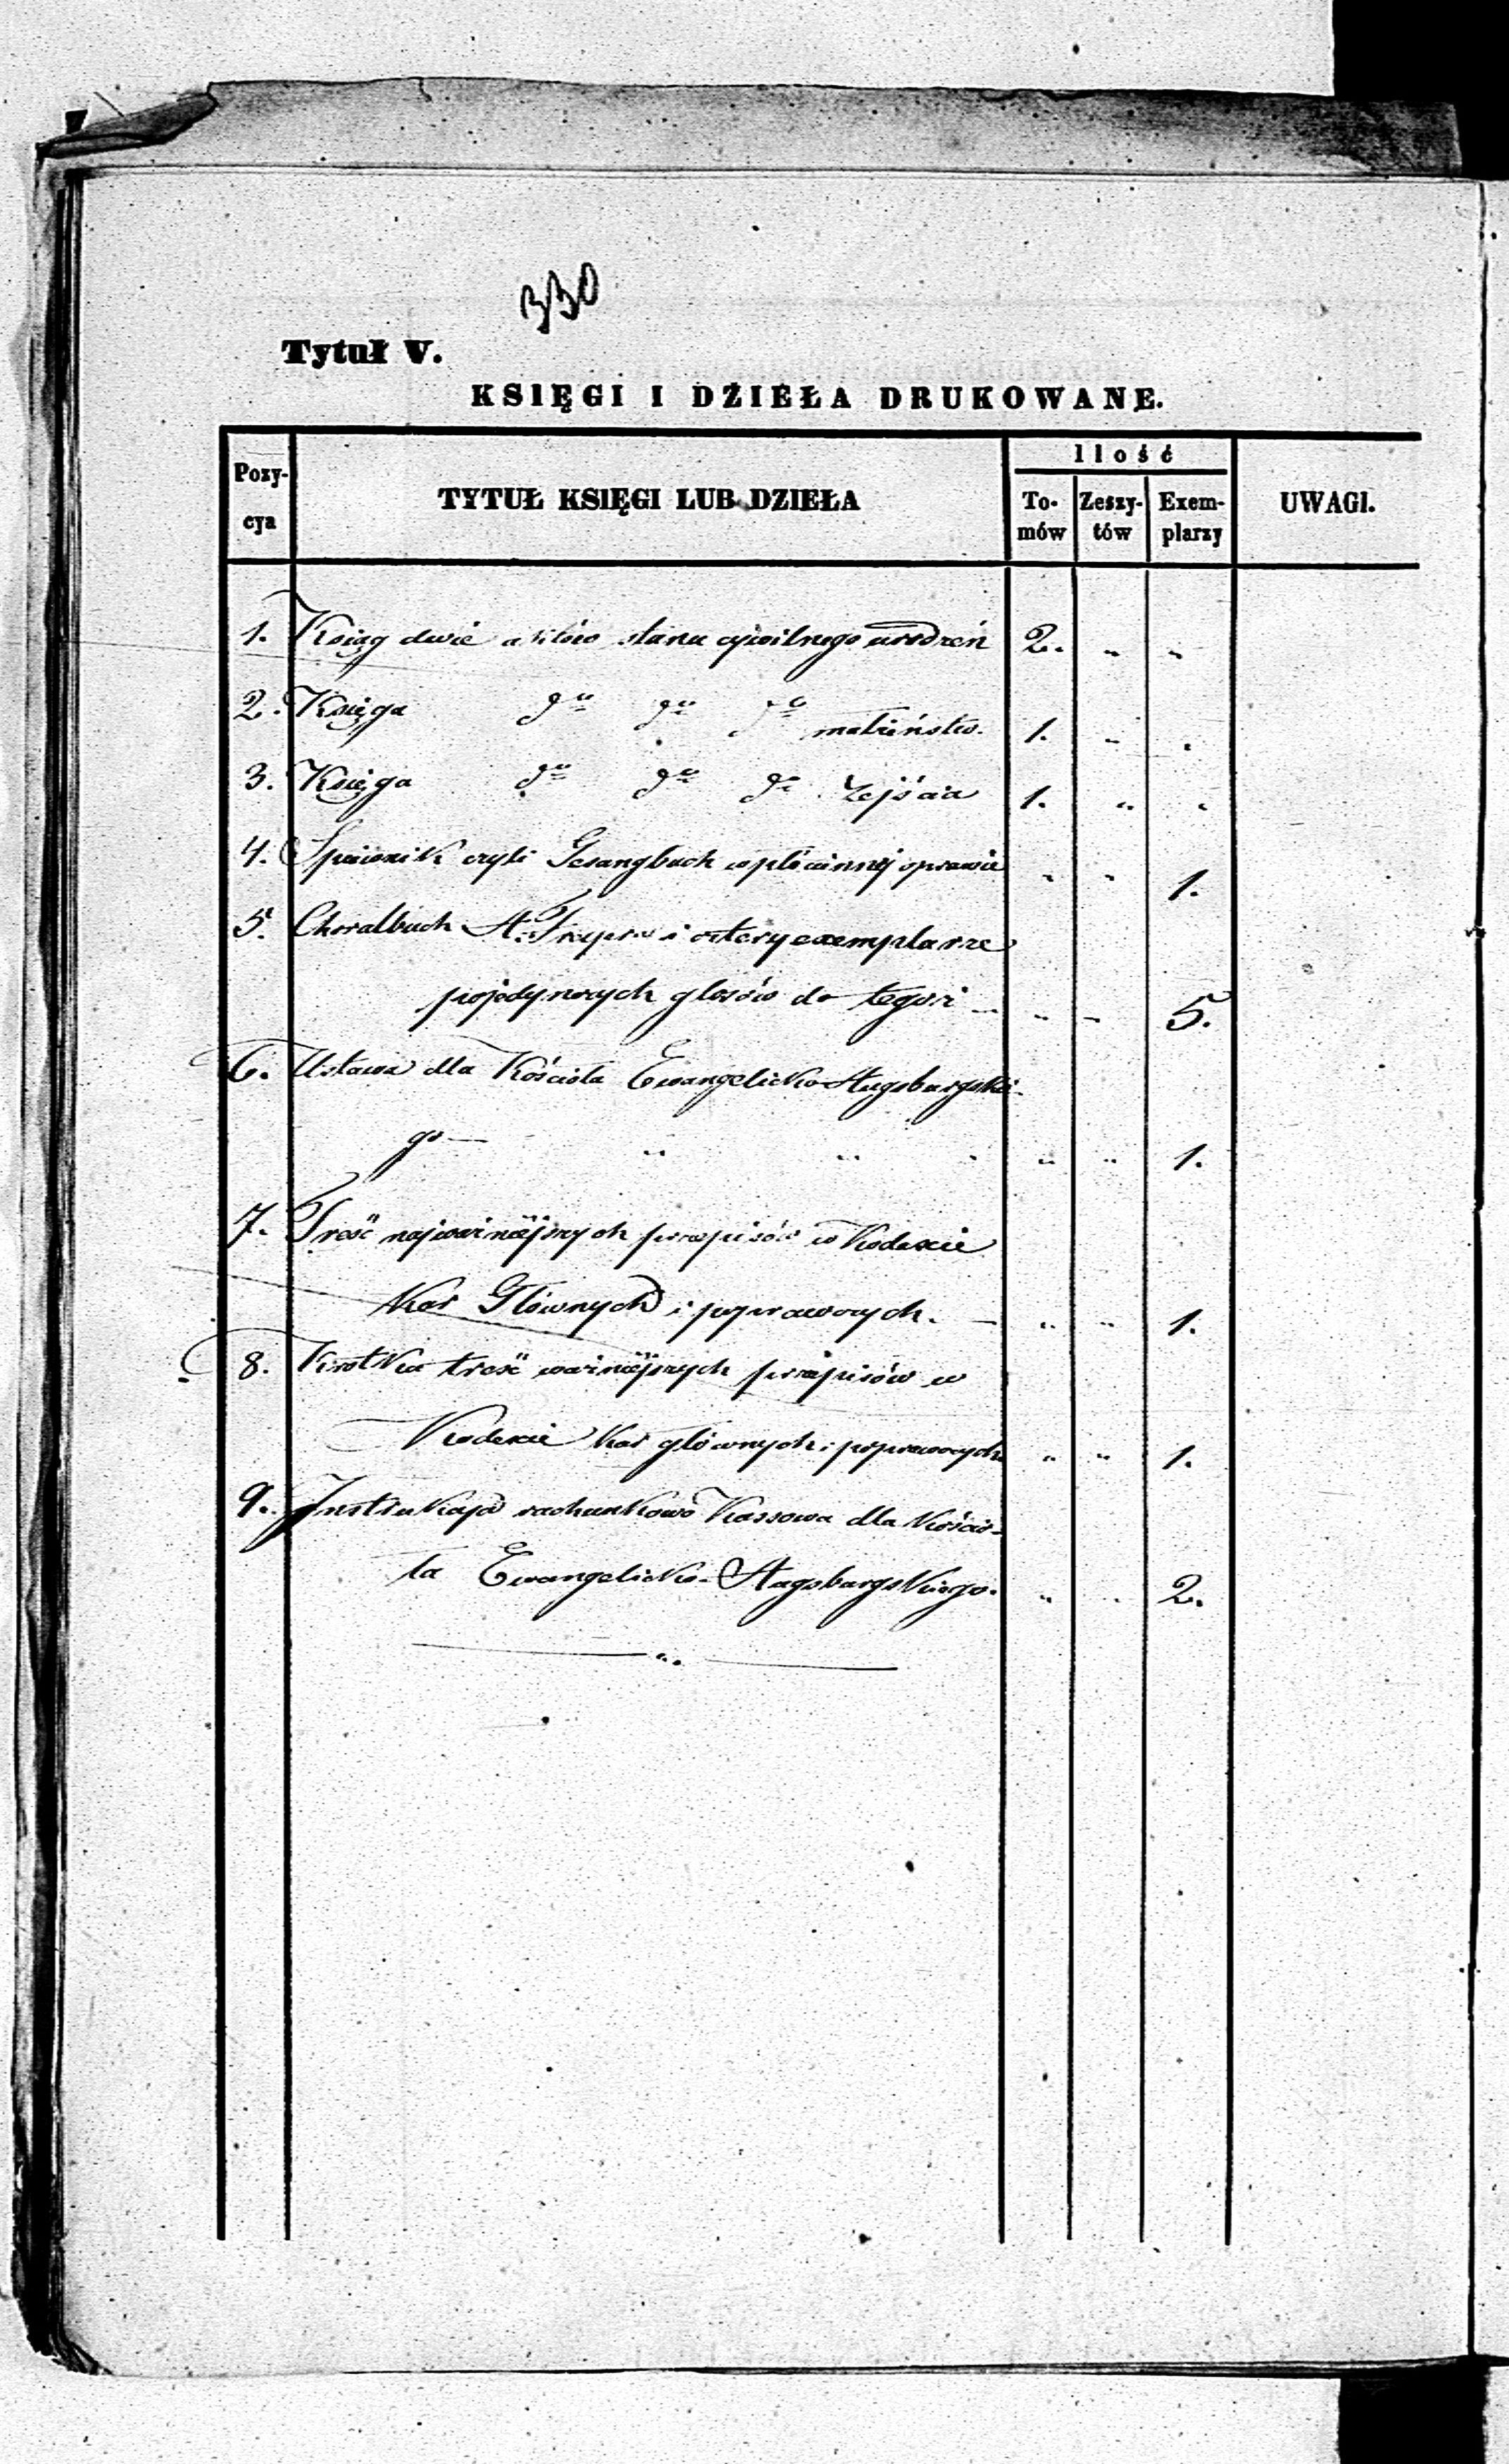 330
Tytuł V.
KSIĘGI I DZIEŁA DRUKOWANE.
Pozy-cya TYTUŁ KSIĘGI LUB DZIEŁA Ilość To-mów Zeszy-tów Exem-plarzy UWAGI.
1. Ksiąg dwie aktów stanu cywilnego urodzeń 2. „ „
2. Księga do do do małżeństw. 1. „ „
3. Księga do do do zejścia 1. „ „
4. Śpiewnik czyli Gesangbuch w płóciennej oprawie „ „ 1.
5. Choralbuch A. i cztery exemplarze
pojedynczych głosów do tegoż — „ – 5.
6. Ustawa dla Kościoła Ewangelicko-Augsburgskie-
go — „ „ „ „ 1.
7. Treść najważniejszych przepisów w Kodexie
Kar Głównych i poprawczych. — „ „ 1.
8. Krótka treść ważniejszych przepisów w
Kodexie Kar głównych i poprawczych „ „ 1.
9. Instrukcja rachunkowo Kassowa dla Kościo-
ła Ewangelicko-Augsburgskiego. „ „ 2.